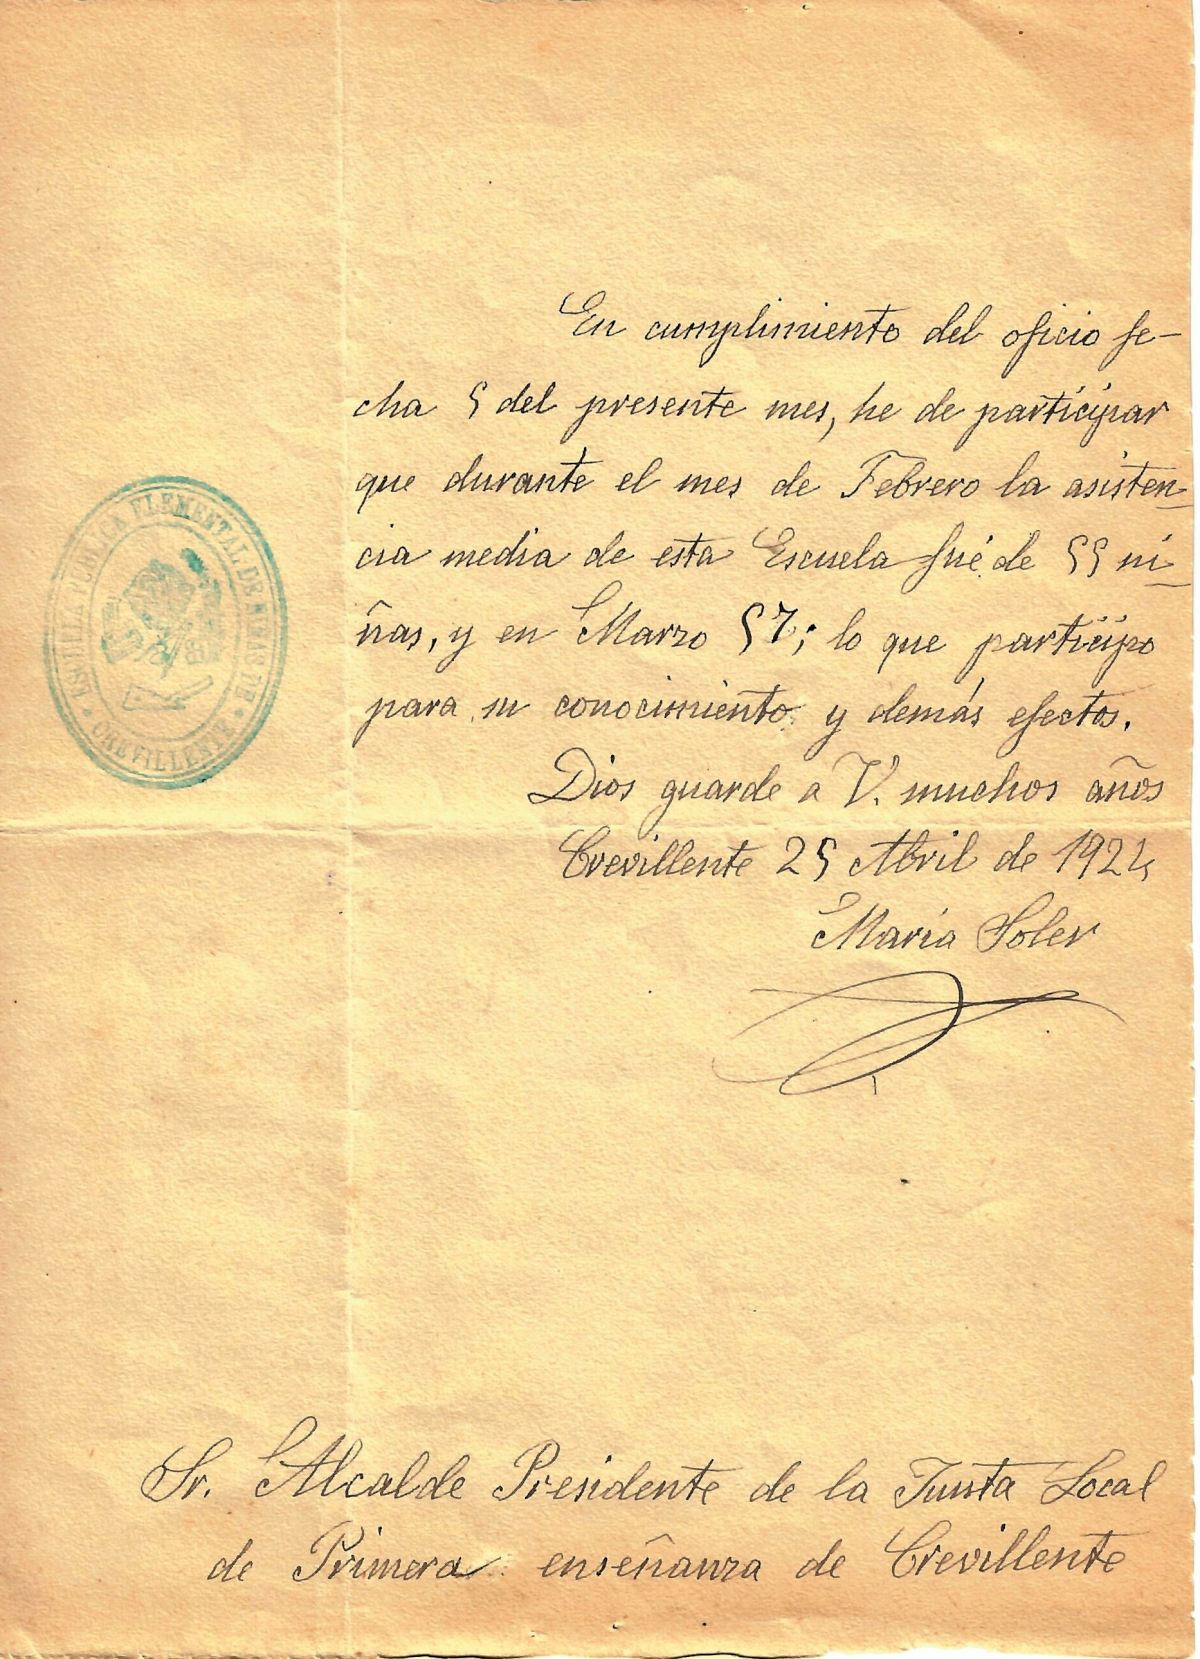 En cumplimiento del oficio fe-
cha 5 del presente mes, he de participar
que durante el mes de Febrero la asisten-
cia media de esta Escuela fué de 55 ni-
ñas, y en Marzo 57; lo que participo
para su conocimiento y demás efectos.
Dios guarde a V. muchos años
Crevillente 25 Abril de 1924
María Soler
ESCUELA PÚBLICA ELEMENTAL DE NIÑAS DE
CREVILLENTE
Sr. Alcalde Presidente de la Junta Local
de Primera enseñanza de Crevillente